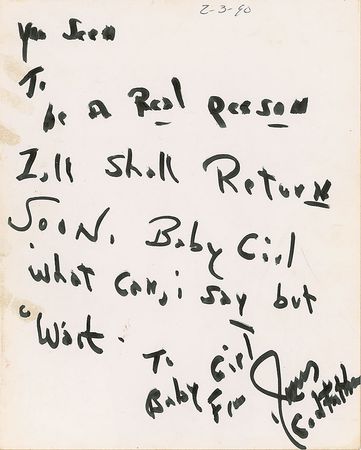 2-3-90
you seem
To
be a Real person
I,ll shall Return
SOON. Baby Girl
what can, i say but
Wait.
To Girl
Baby Fm
James
Godfather